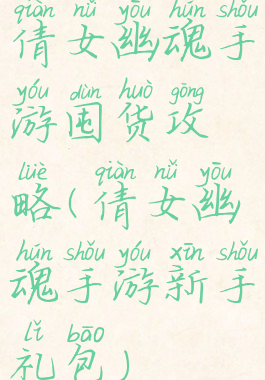 qiàn nǚ yōu hún shǒu
倩女幽魂手
yóu dùn huò gōng
游囤货攻
lüè qiàn nǚ yōu
略(倩女幽
hún shǒu yóu xīn shǒu
魂手游新手
lǐ bāo
礼包)